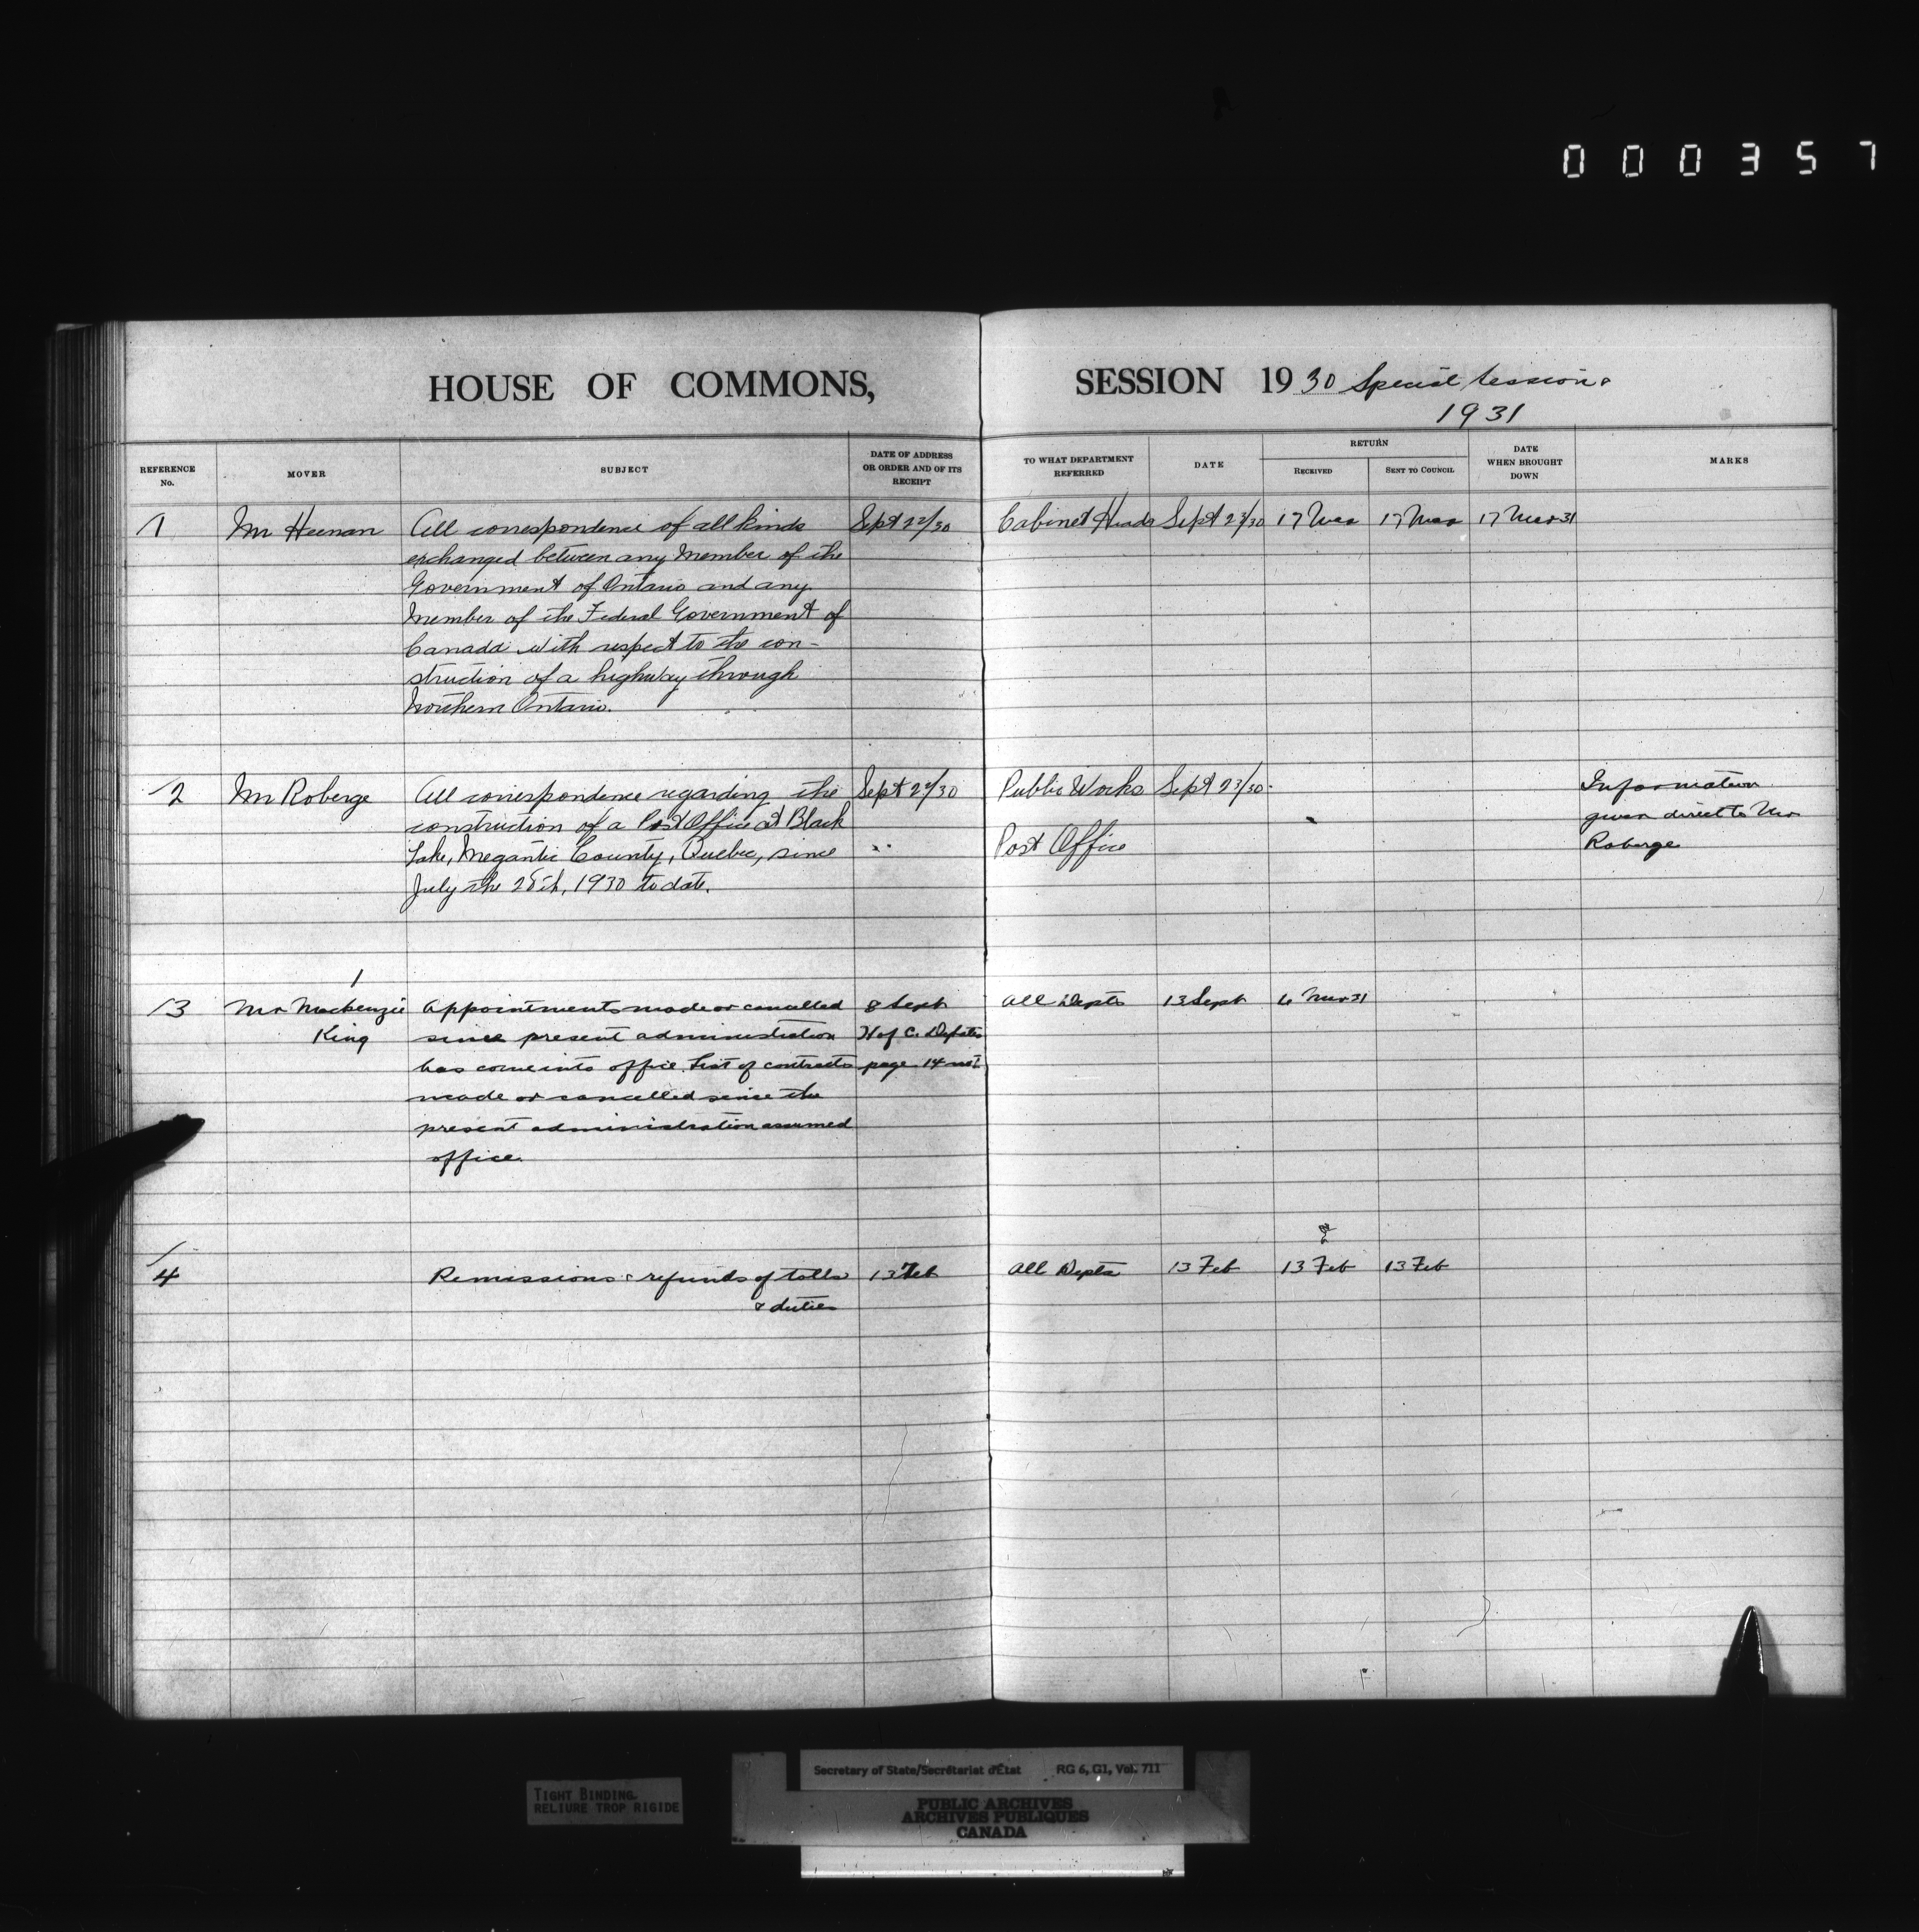 000357
HOUSE OF COMMONS,
SESSION 1930 Special Session &
1931
REFERENCE No.
MOVER
SUBJECT
DATE OF ADDRESS OR ORDER AND OF ITS RECEIPT
TO WHAT DEPARTMENT REFERRED
DATE
RETURN
RECEIVED
SENT TO COUNCIL
DATE WHEN BROUGHT DOWN
MARKS
1 Mr Heenan All correspondence of all kinds Sept 22/30 Cabinet Heads Sept 23/30 17 Mar 17 Mar 17 Mar 31
exchanged between any Member of the
Government of Ontario and any
Member of the Federal Government of
Canada with respect to the con-
struction of a highway through
Northern Ontario.
2 Mr Roberge All correspondence regarding the Sept 22/30 Public Works Sept 23/30. Information
construction of a Post Office at Black given direct to Mr
Lake, Megantic County, Quebec, since " Post Office Roberge
July the 28th, 1930 to date.
3 Mr Mackenzie Appointments made or cancelled 8 Sept All Depts 13 Sept 6 Mar 31
King since present administration H of C. Debates
has come into office. List of contracts page 14
made or cancelled since the
present administration assumed
office.
4 Remissions & refunds of tolls 13 Feb All Depts 13 Feb 13 Feb 13 Feb
& duties
TIGHT BINDING
RELIURE TROP RIGIDE
Secretary of State/Secrétariat d'État RG 6, G1, Vol. 711
PUBLIC ARCHIVES
ARCHIVES PUBLIQUES
CANADA